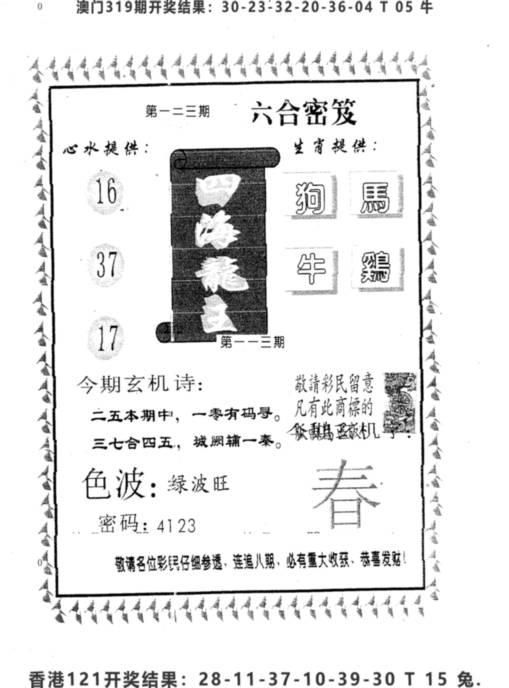 澳门319期开奖结果：30-23-32-20-36-04 T 05 牛
第一二三期
六合密笈
心水提供：
生肖提供：
16
37
17
四海龍王
狗 馬
牛 鷄
第一一三期
今期玄机诗：
二五本期中，一零有码寻。
三七合四五，城阙辅一秦。
敬請彩民留意
凡有此商標的
色波：绿波旺
密码：4123
春
敬请各位彩民仔细参透、连追八期、必有重大收获、恭喜发财！
香港121开奖结果：28-11-37-10-39-30 T 15 兔.